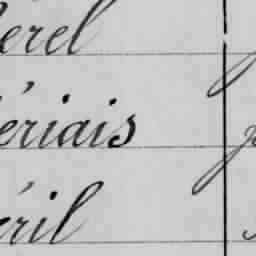 érel
ériais
éril